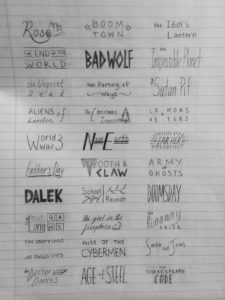 Rose
THE END OF THE
WORLD
the Unquiet
Dead
ALIENS of
London
World
War 3
Father's Day
DALEK
THE EMPTY CHILD
the Doctor
Dances
"BOOM
TOWN"
BADWOLF
the Parting of
the Ways
The Christmas
Invasion
New Earth
TOOTH &
CLAW
School
Reunion
the girl in the
fireplace
RISE OF THE
CYBERMEN
AGE of STEEL
the Idiot's
Lantern
the
Impossible Planet
the
Satan Pit
FEAR HER
ARMY
of
GHOSTS
DOOMSDAY
the
Runaway
BRIDE
Smith and Jones
THE SHAKESPEARE
CODE